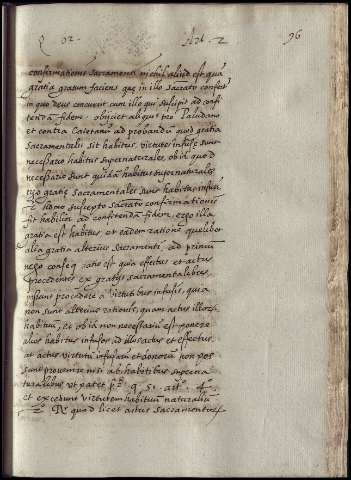 Q 62. Art. 2 96
confirmationis sacramenti nihil aliud est quã
gratia gratum faciens quę in illo sacrato confert
in quo deus concurrit cum illo qui suscipit ad confi
tendã fidem. obijciet aliquis tro Paludano
et contra Caietanũ ad probandũ quod gratia
sacramentalis sit habitus, virtutes infusę sunt
necessario habitus supernaturales, ob id quod
necessario sunt quidã habitus supernaturales
ergo gratię sacramentales sunt habitus infusi
2° homo suscepto sacrato confirmationis
fit habilior ad confitendã fidem, ergo illa
gratia est habitus et eadem ratione quęlibet
alia gratia alterius sacramenti. ad primũ
nego conseq. ratio est quia effectus et actus
procedentes ex gratijs sacramentalibus
possunt procedere a virtutibus infusis, quia
non sunt alterius rationis, quam actus illorũ
habituũ, et ob id non necessariũ est ponere
alios habitus infusos ad illos actus et effectus
at actus virtutũ infusarũ et donorũ non pos
sunt provenire nisi ab habitibus superna
turalibus ut patet pª 2ę q. 51. artº. 4.
et excedunt virtutem habituũ naturaliũ
2° Dr quod licet actus sacramentales